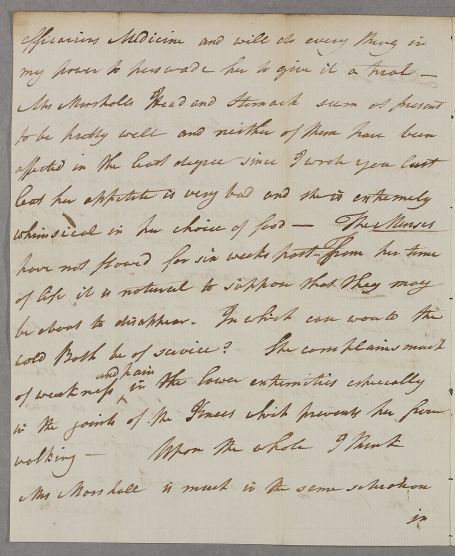 efficacious Medicine and will do every thing in
my power to perswade her to give it a trial —
Mrs Marshalls Head and Stomach seem at present
to be pretty well and neither of them have been
affected in the least degree since I wrote you last
but her appetite is very bad and she is extremely
whimsical in her choice of food — The Menses
have not flowed for six weeks past — From her time
of life it is natural to suppose that they may
be about to disappear. In which case would the
cold Bath be of service? She complains much
of weakness and pain in the lower extremities especially
in the joints of the Knees which prevents her from
walking — Upon the whole I think
Mrs Marshall is much in the same situation
in